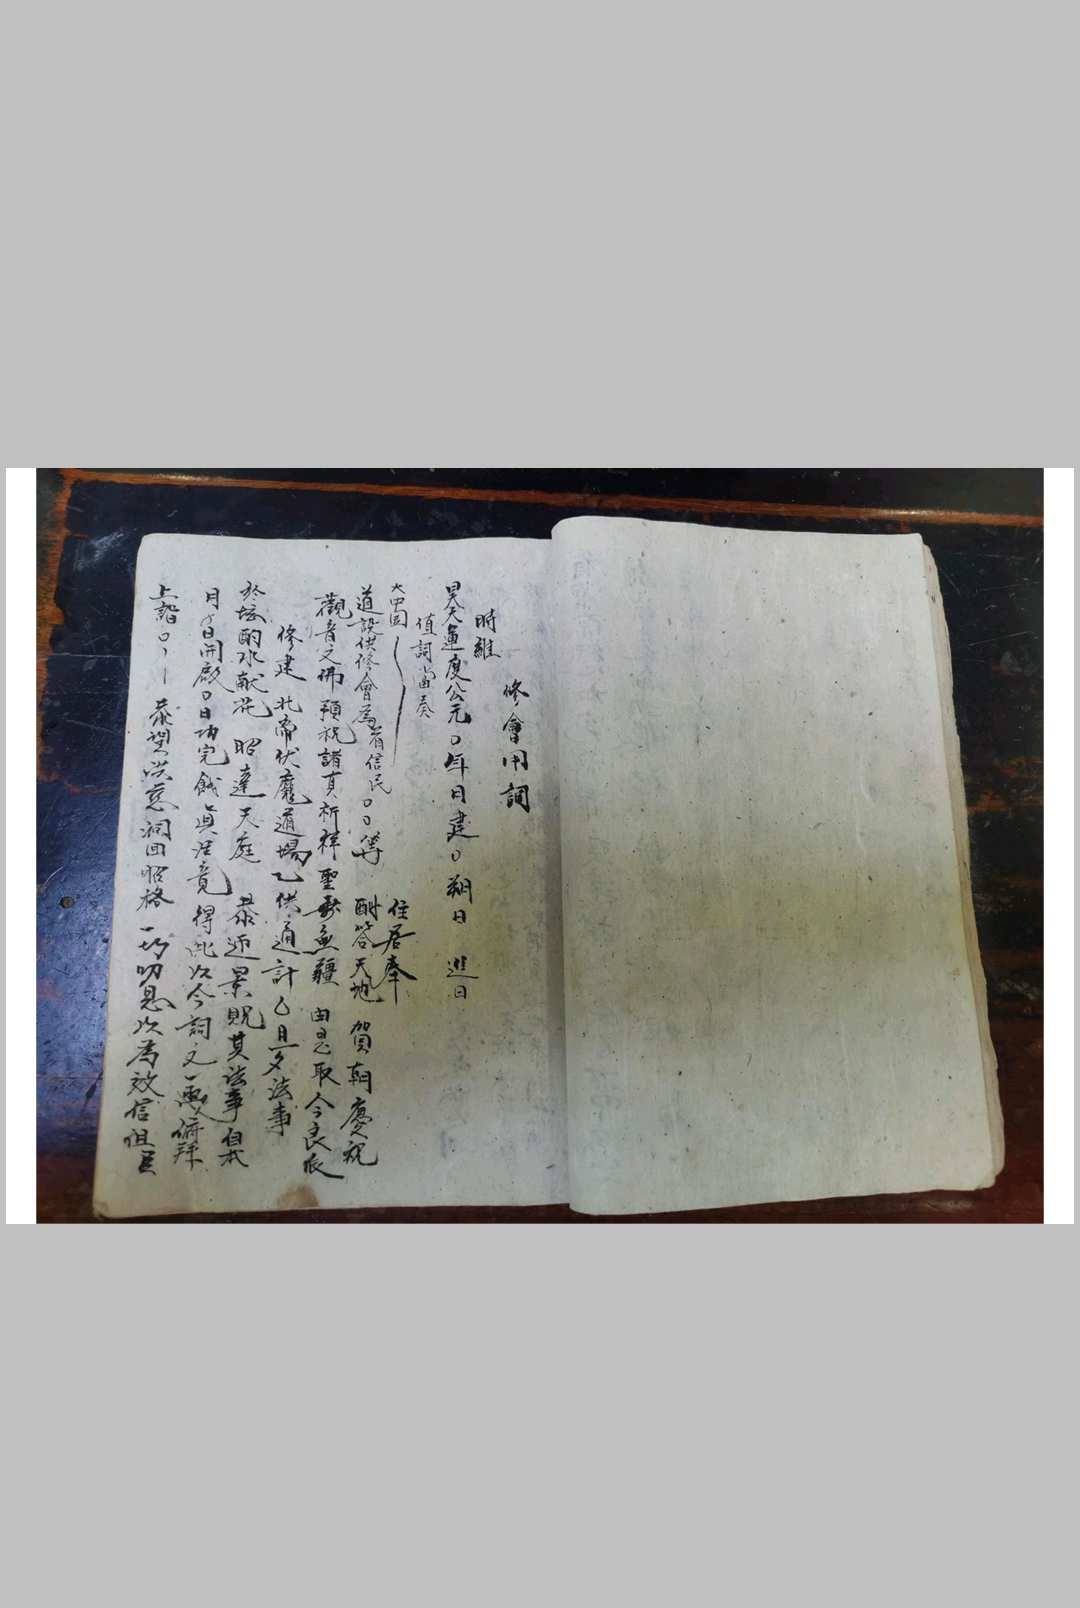 修會用詞
時維
昊天運度公元〇年日建〇朔日 進日
值詞當奏
大中国 住居奉
道設供修會為有信民〇〇等 酬答天地 賀朝慶祝
觀音文佛預祝諸真祈祥聖壽無疆 由是取今良辰
修建 北帝伏魔道場乙供通計乙旦夕法事
於坛酌水献花 昭達天庭 恭迎景貺其法事自本
月 日開啟〇日功完 得此以今詞文一函俯拜
上詣〇 恭望洪慈洞回昭格 一切叨恩以為效信但